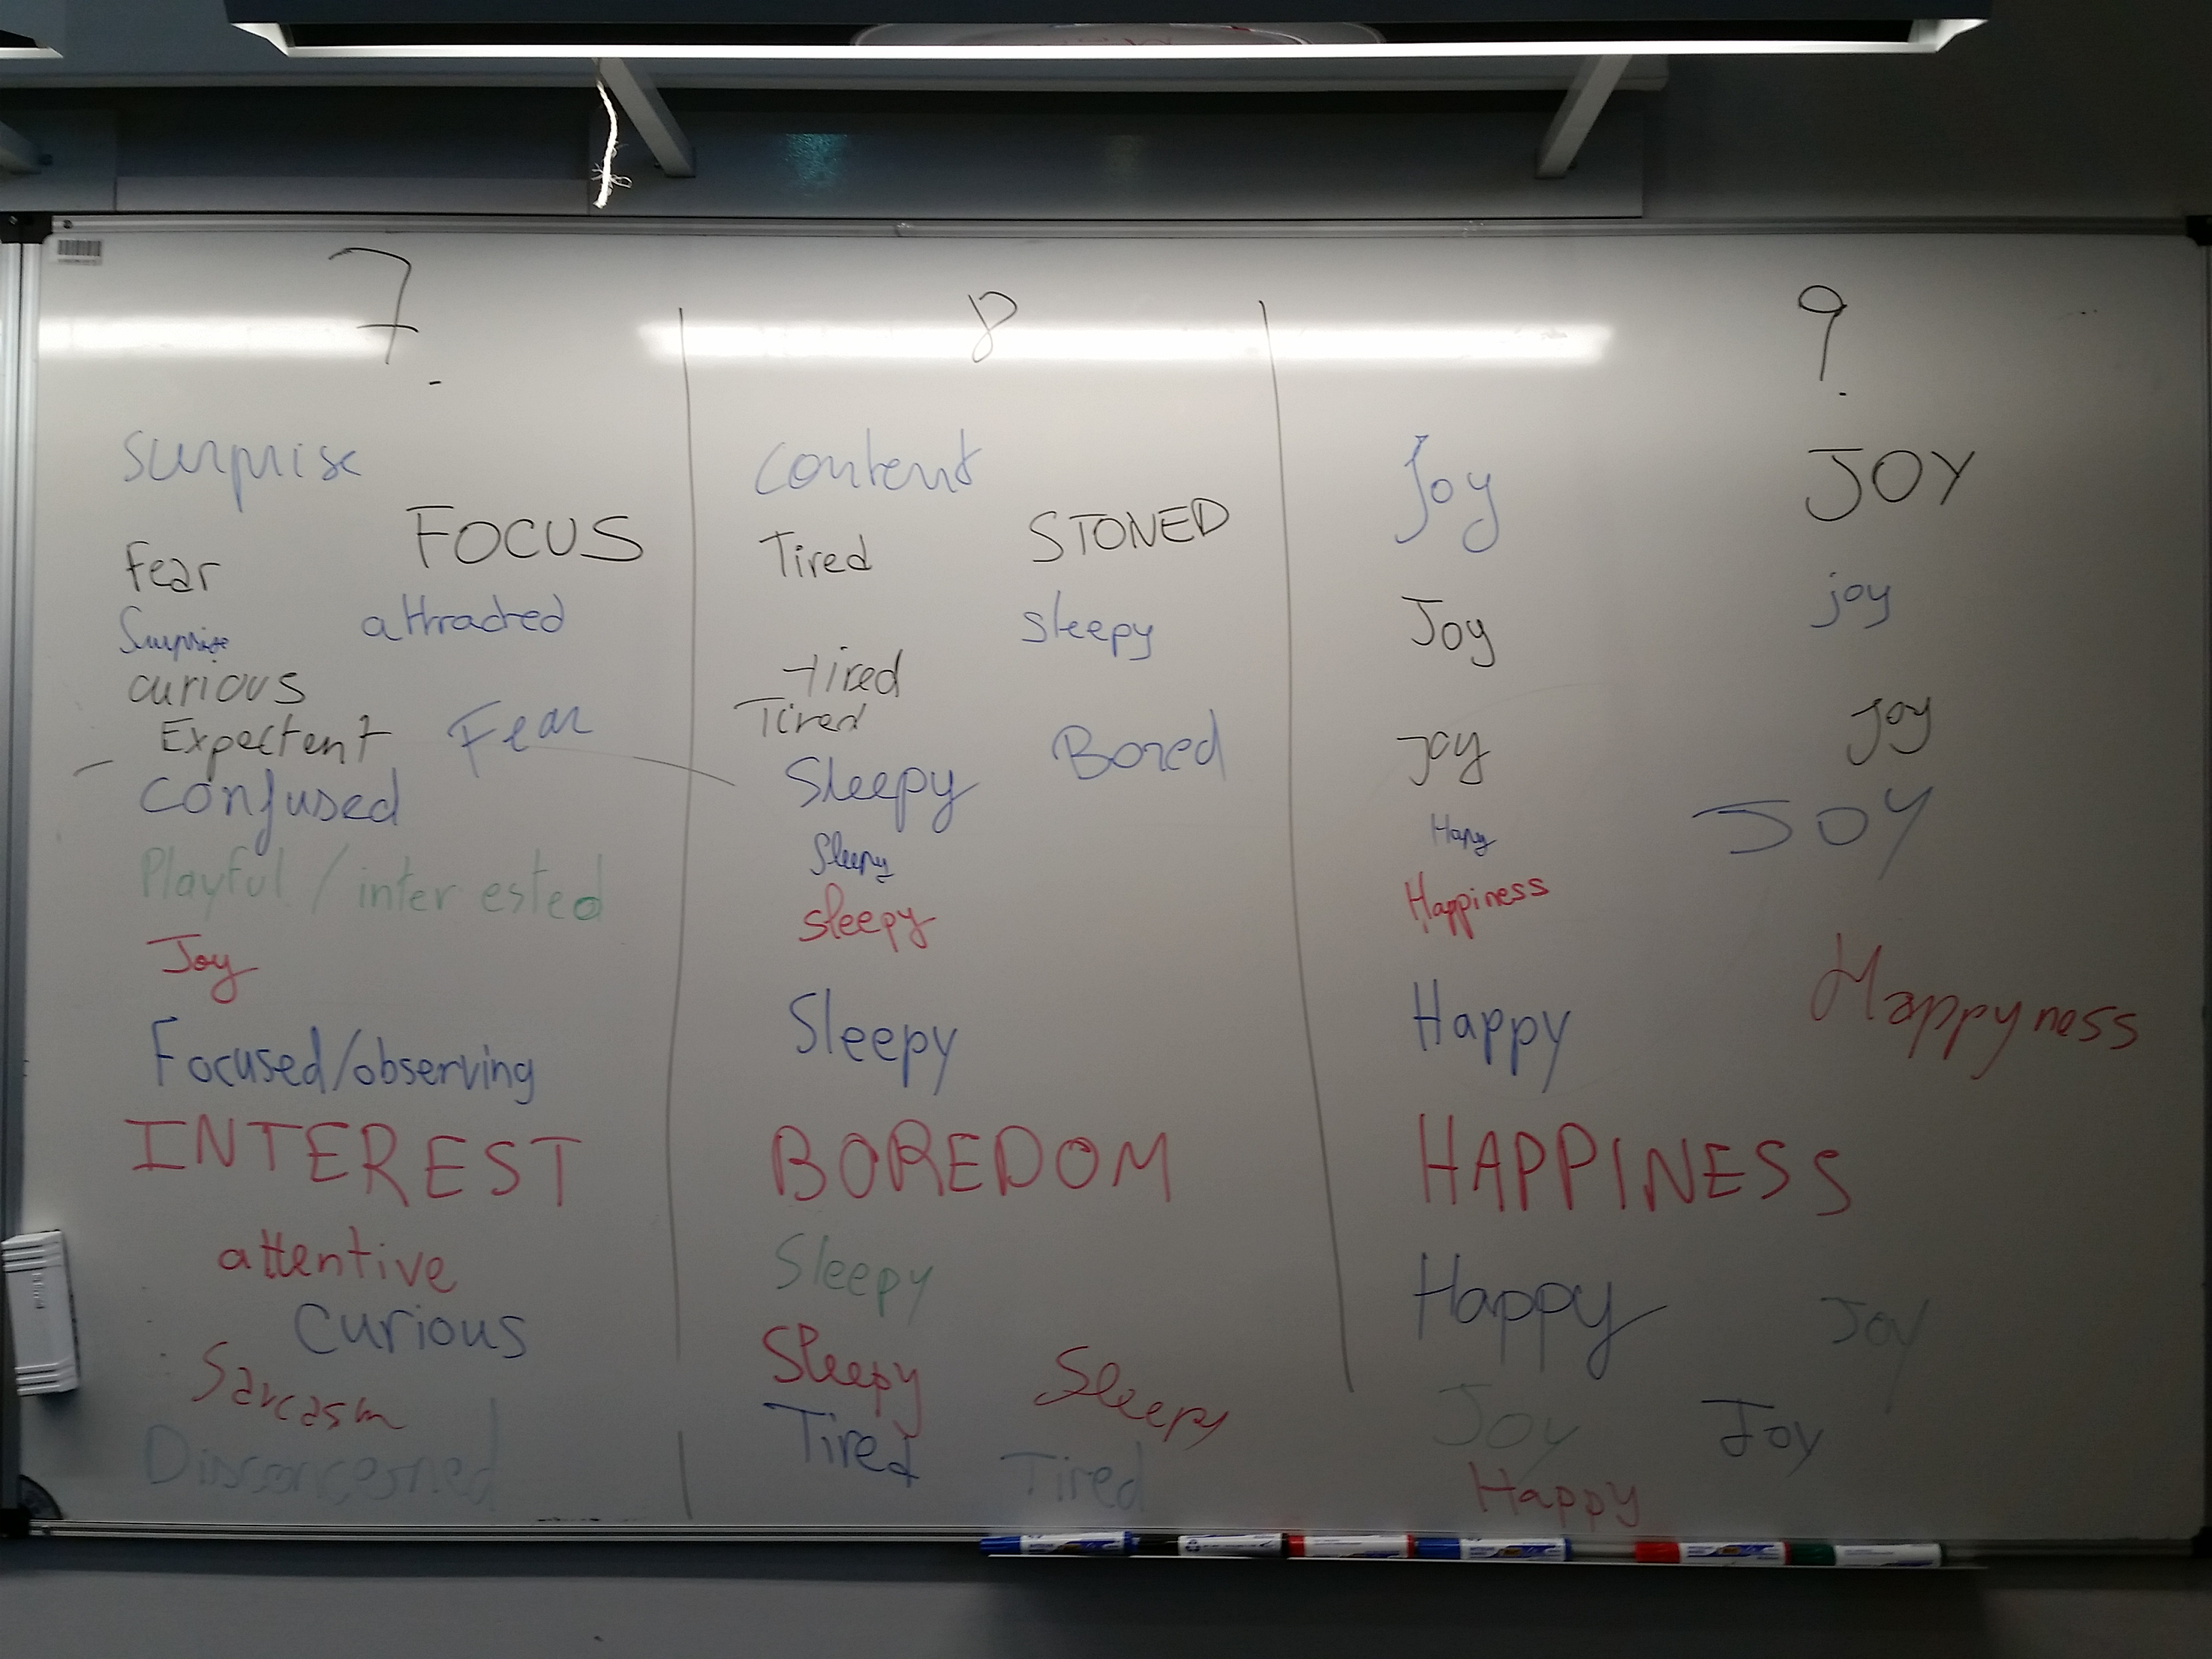 7.
surprise
FOCUS
Fear
Surprise
attracted
curious
Expectent
Fear
confused
Playful / interested
Joy
Focused/observing
INTEREST
attentive
Curious
Sarcasm
Disconcerned
8
content
Tired
STONED
sleepy
tired
Tired
Sleepy
Bored
Sleepy
sleepy
Sleepy
BOREDOM
Sleepy
Sleepy
Sleepy
Tired
Tired
9.
Joy
JOY
Joy
joy
joy
joy
Happy
JOY
Happiness
Happyness
Happy
HAPPINESS
Happy
Joy
Joy
Joy
Happy